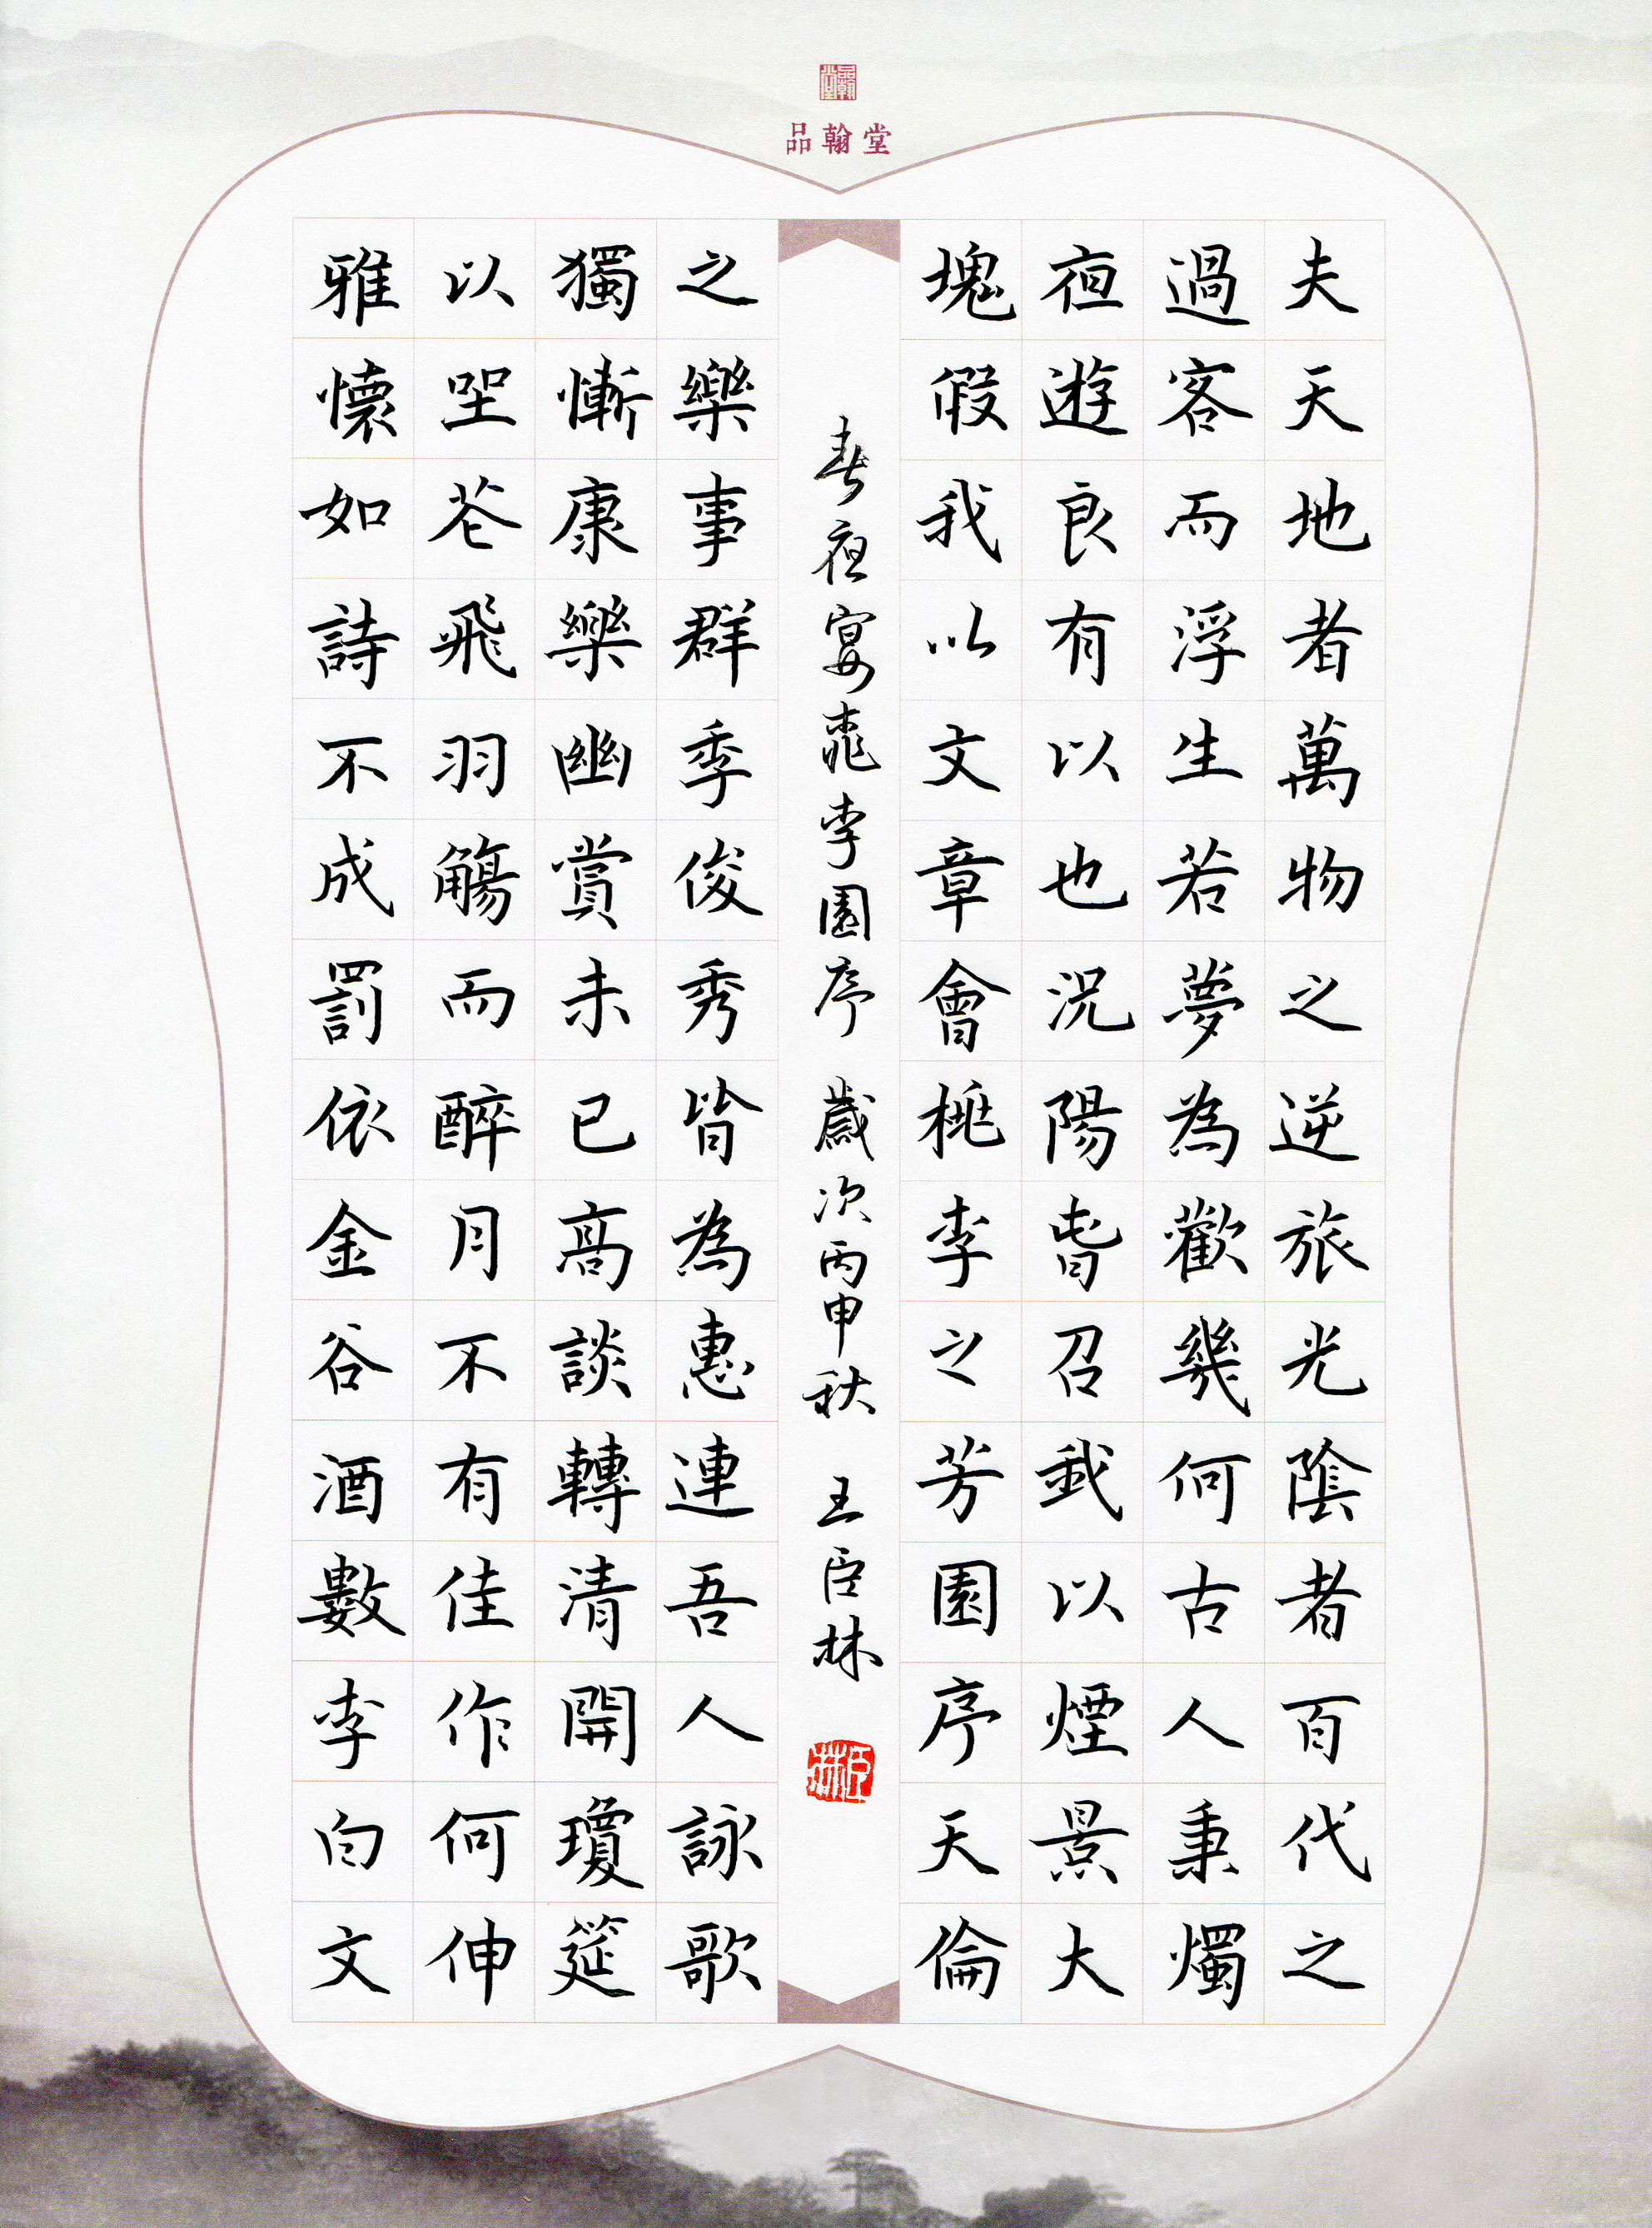 品翰堂
品翰堂
夫天地者萬物之逆旅光陰者百代之
過客而浮生若夢為歡幾何古人秉燭
夜遊良有以也況陽春召我以煙景大
塊假我以文章會桃李之芳園序天倫
春夜宴桃李園序 歲次丙申秋 王臣林
臣林
之樂事群季俊秀皆為惠連吾人詠歌
獨慚康樂幽賞未已高談轉清開瓊筵
以坐花飛羽觴而醉月不有佳作何伸
雅懷如詩不成罰依金谷酒數李白文